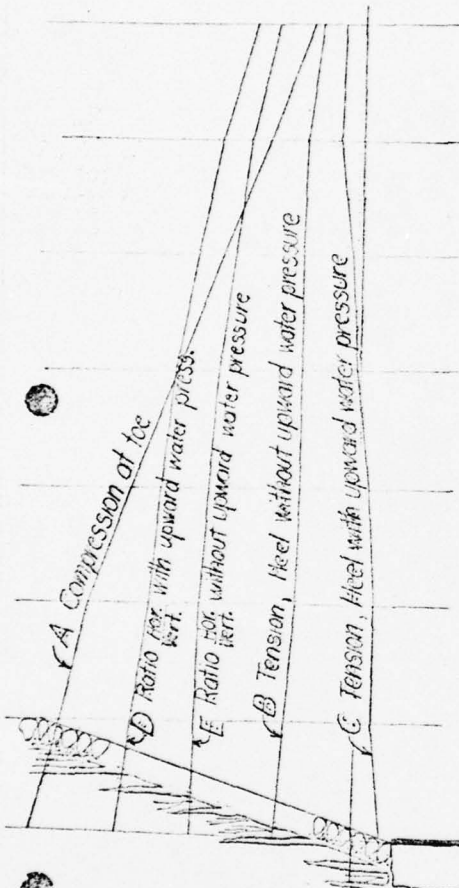 A Compression at toe
D Ratio hor. vert. with upward water press.
E Ratio hor. vert. without upward water pressure
B Tension, Heel without upward water pressure
C Tension, Heel with upward water pressure